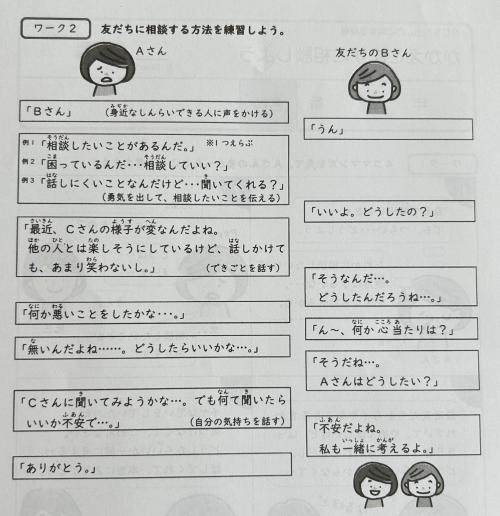 ワーク2 友だちに相談する方法を練習しよう。
Aさん
友だちのBさん
「Bさん」 (身近なしんらいできる人に声をかける)
「うん」
例1「相談したいことがあるんだ。」 ※1つえらぶ
例2「困っているんだ・・・相談していい？」
例3「話しにくいことなんだけど・・・聞いてくれる？」
(勇気を出して、相談したいことを伝える)
「いいよ。どうしたの？」
「最近、Cさんの様子が変なんだよね。
他の人とは楽しそうにしているけど、話しかけて
も、あまり笑わないし。」 (できごとを話す)
「そうなんだ…。
どうしたんだろうね…。」
「何か悪いことをしたかな・・・。」
「ん〜、何か心当たりは？」
「無いんだよね……。どうしたらいいかな…。」
「そうだね…。
Aさんはどうしたい？」
「Cさんに聞いてみようかな…。でも何て聞いたら
いいか不安で…。」 (自分の気持ちを話す)
「不安だよね。
私も一緒に考えるよ。」
「ありがとう。」